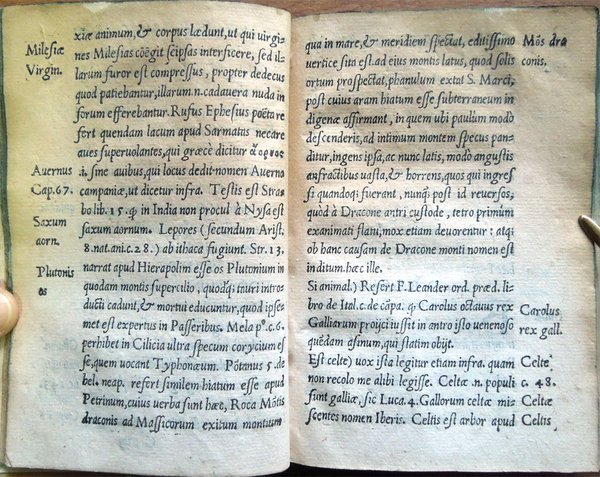 Milesiæ
Virgin.
Auernus
Cap. 67.
Saxum
aorn.
Plutonis
os
xiæ animum, & corpus lædunt, ut qui virgi
nes Milesias cöegit seipsas interficere, sed il
larum furor est compressus, propter dedecus
quod patiebantur, illarum .n. cadauera nuda in
forum efferebantur. Rufus Ephesius poëta re
fert quendam lacum apud Sarmatas necare
aues superuolantes, qui græcè dicitur ἄορνος
.i. sine auibus, qui locus dedit nomen Auerno
campaniæ, ut dicetur infra. Testis est Stra
bo lib. 15. ꝙ in India non procul à Nysa est
saxum aornum. Lepores (secundum Arist.
8. nat. ani. c. 28.) ab ithaca fugiunt. Str. 13.
narrat apud Hierapolim esse os Plutonium in
quodam montis supercilio, quodꝗ; tauri intro
ducti cadunt, & mortui educuntur, quod ipse
met est expertus in Passeribus. Mela pº. c. 6.
perhibet in Cilicia ultra specum corycium es
se, quem uocant Typhonæum. Põtanus 5. de
bel. neap. refert similem hiatum esse apud
Petrinum, cuius uerba sunt hæc, Roca Mõtis
draconis ad Massicorum exitum montium
qua in mare, & meridiem spectat, editissimo
uertice sita est. ad eius montis latus, quod solis
ortum prospectat, phanulum extat S. Marci,
post cuius aram hiatum esse subterraneum in
digenæ affirmant, in quem ubi paulum modo
descenderis, ad intimum montem specus pan
ditur, ingens ipsa, ac nunc latis, modo angustis
anfractibus uasta, & horrens, quos qui ingres
si quandoꝗ; fuerant, nunꝗ; post id reuersos,
quòd à Dracone antri custode, tetro primum
exanimati flatu, mox etiam deuorentur: atꝗ;
ob hanc causam de Dracone monti nomen est
inditum. hæc ille.
Si animal.) Refert F. Leander ord. præd. li
bro de Ital. c. de cãpa. ꝙ Carolus octauus rex
Galliarum proijci iussit in antro isto uenenoso
quẽdam asinum, qui statim obijt.
Est celte) uox ista legitur etiam infra. quam
non recolo me alibi legisse. Celtæ .n. populi
sunt galliæ, sic Luca. 4. Gallorum celtæ mi
scentes nomen Iberis. Celtis est arbor apud
Mõs dra
conis.
Carolus
rex gall.
Celte
c. 48.
Celtæ
Celtis